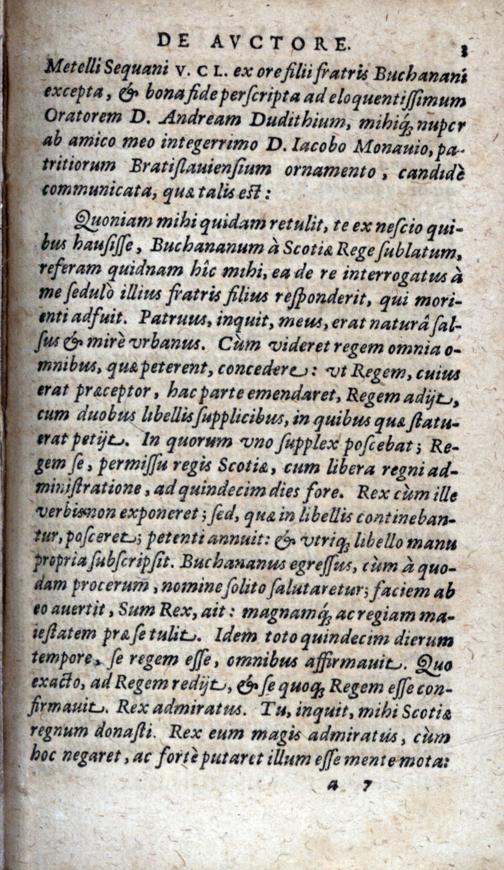 DE AVCTORE. 3
Metelli Sequani V. CL. ex ore filii fratris Buchanani
excepta, & bona fide perſcripta ad eloquentiſſimum
Oratorem D. Andream Dudithium, mihiq́; nuper
ab amico meo integerrimo D. Iacobo Monauio, pa-
tritiorum Bratiſlauienſium ornamento, candidè
communicata, quæ talis eſt:
Quoniam mihi quidam retulit, te ex neſcio qui-
bus hauſiſſe, Buchananum à Scotiæ Rege ſublatum,
referam quidnam hîc mihi, ea de re interrogatus à
me ſedulò illius fratris filius reſponderit, qui mori-
enti adfuit. Patruus, inquit, meus, erat naturâ ſal-
ſus & mirè vrbanus. Cùm videret regem omnia o-
mnibus, quæ peterent, concedere: vt Regem, cuius
erat præceptor, hac parte emendaret, Regem adijt,
cum duobus libellis ſupplicibus, in quibus quæ ſtatu-
erat petijt. In quorum vno ſupplex poſcebat; Re-
gem ſe, permiſſu regis Scotiæ, cum libera regni ad-
miniſtratione, ad quindecim dies fore. Rex cùm ille
verbis non exponeret; ſed, quæ in libellis contineban-
tur, poſceret; petenti annuit: & vtriq; libello manu
propria ſubſcripſit. Buchananus egreſſus, cùm à quo-
dam procerum, nomine ſolito ſalutaretur; faciem ab
eo auertit, Sum Rex, ait: magnamq́; ac regiam ma-
ieſtatem præ ſe tulit. Idem toto quindecim dierum
tempore, ſe regem eſſe, omnibus affirmauit. Quo
exacto, ad Regem redijt, & ſe quoq; Regem eſſe con-
firmauit. Rex admiratus. Tu, inquit, mihi Scotiæ
regnum donaſti. Rex eum magis admiratus, cùm
hoc negaret, ac fortè putaret illum eſſe mente mota:
a 7